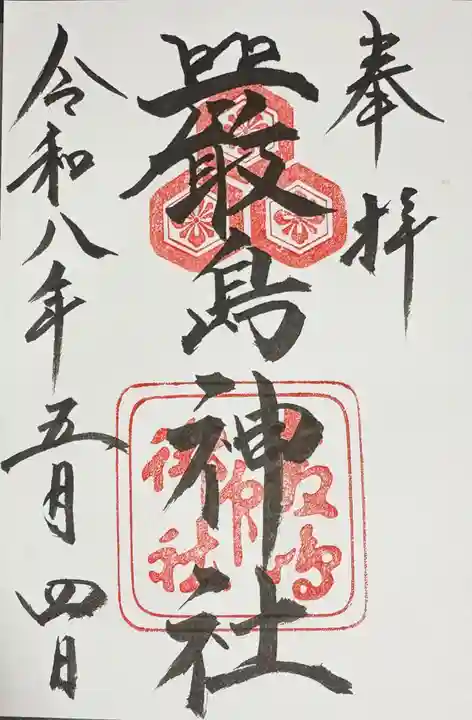 奉拝
嚴島神社
令和八年五月四日